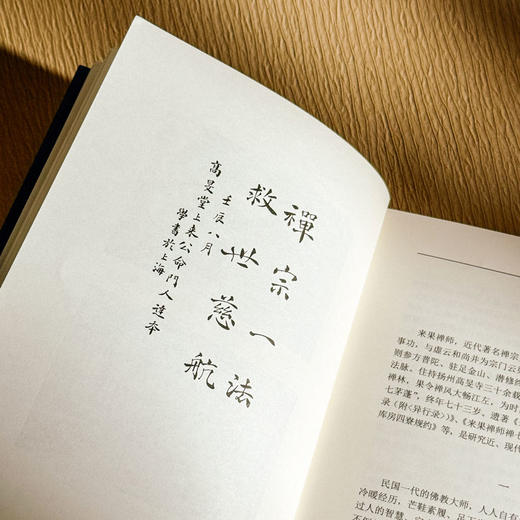 禪宗一法
救世慈航
壬辰八月
高旻堂上来公命門人達本
學書於上海
来果禅师，近代著名禅宗
事功，与虚云和尚并为宗门云
则参方普陀、驻足金山、潜修
法脉。住持扬州高旻寺三十余载
禅林，果令禅风大畅江左，为时
七茅蓬”，终年七十三岁。遗著《
录（附〈异行录〉）》、《来果禅师禅七
库房四寮规约》等，是研究近、现代
一
民国一代的佛教大师，人人自有
冷暖经历，芒鞋素履，足下
过人的智慧、